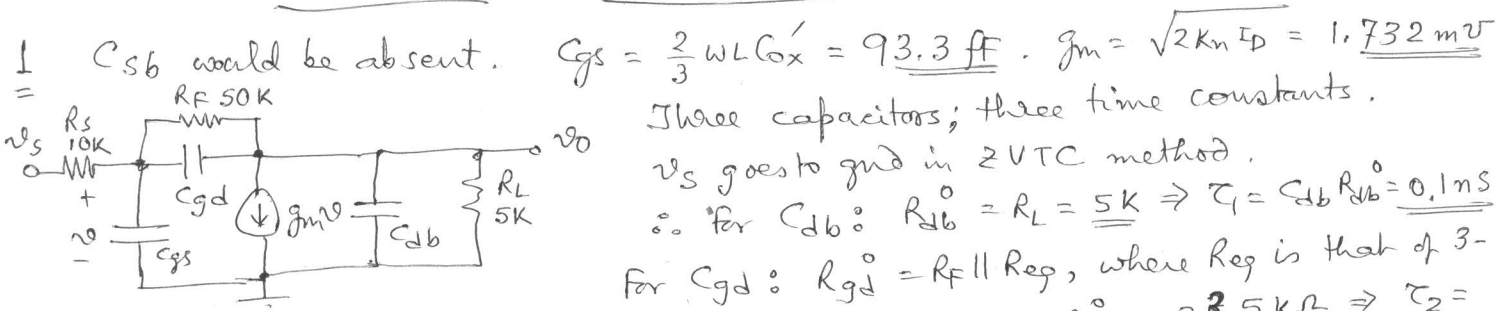 1 Csb would be absent. Cgs = 2/3 WLCox' = 93.3 fF. gm = √2KnID = 1.732 m℧
Three capacitors; three time constants.
vs goes to gnd in ZVTC method.
∴ for Cdb: Rdb⁰ = RL = 5K ⇒ τ1 = Cdb Rdb⁰ = 0.1ns
For Cgd: Rgd⁰ = RF || Req, where Req is that of 3-
5KΩ ⇒ τ2 =
RF 50K
Rs
10K
vs
+
v
-
Cgs
Cgd
gmv
Cdb
RL
5K
vo